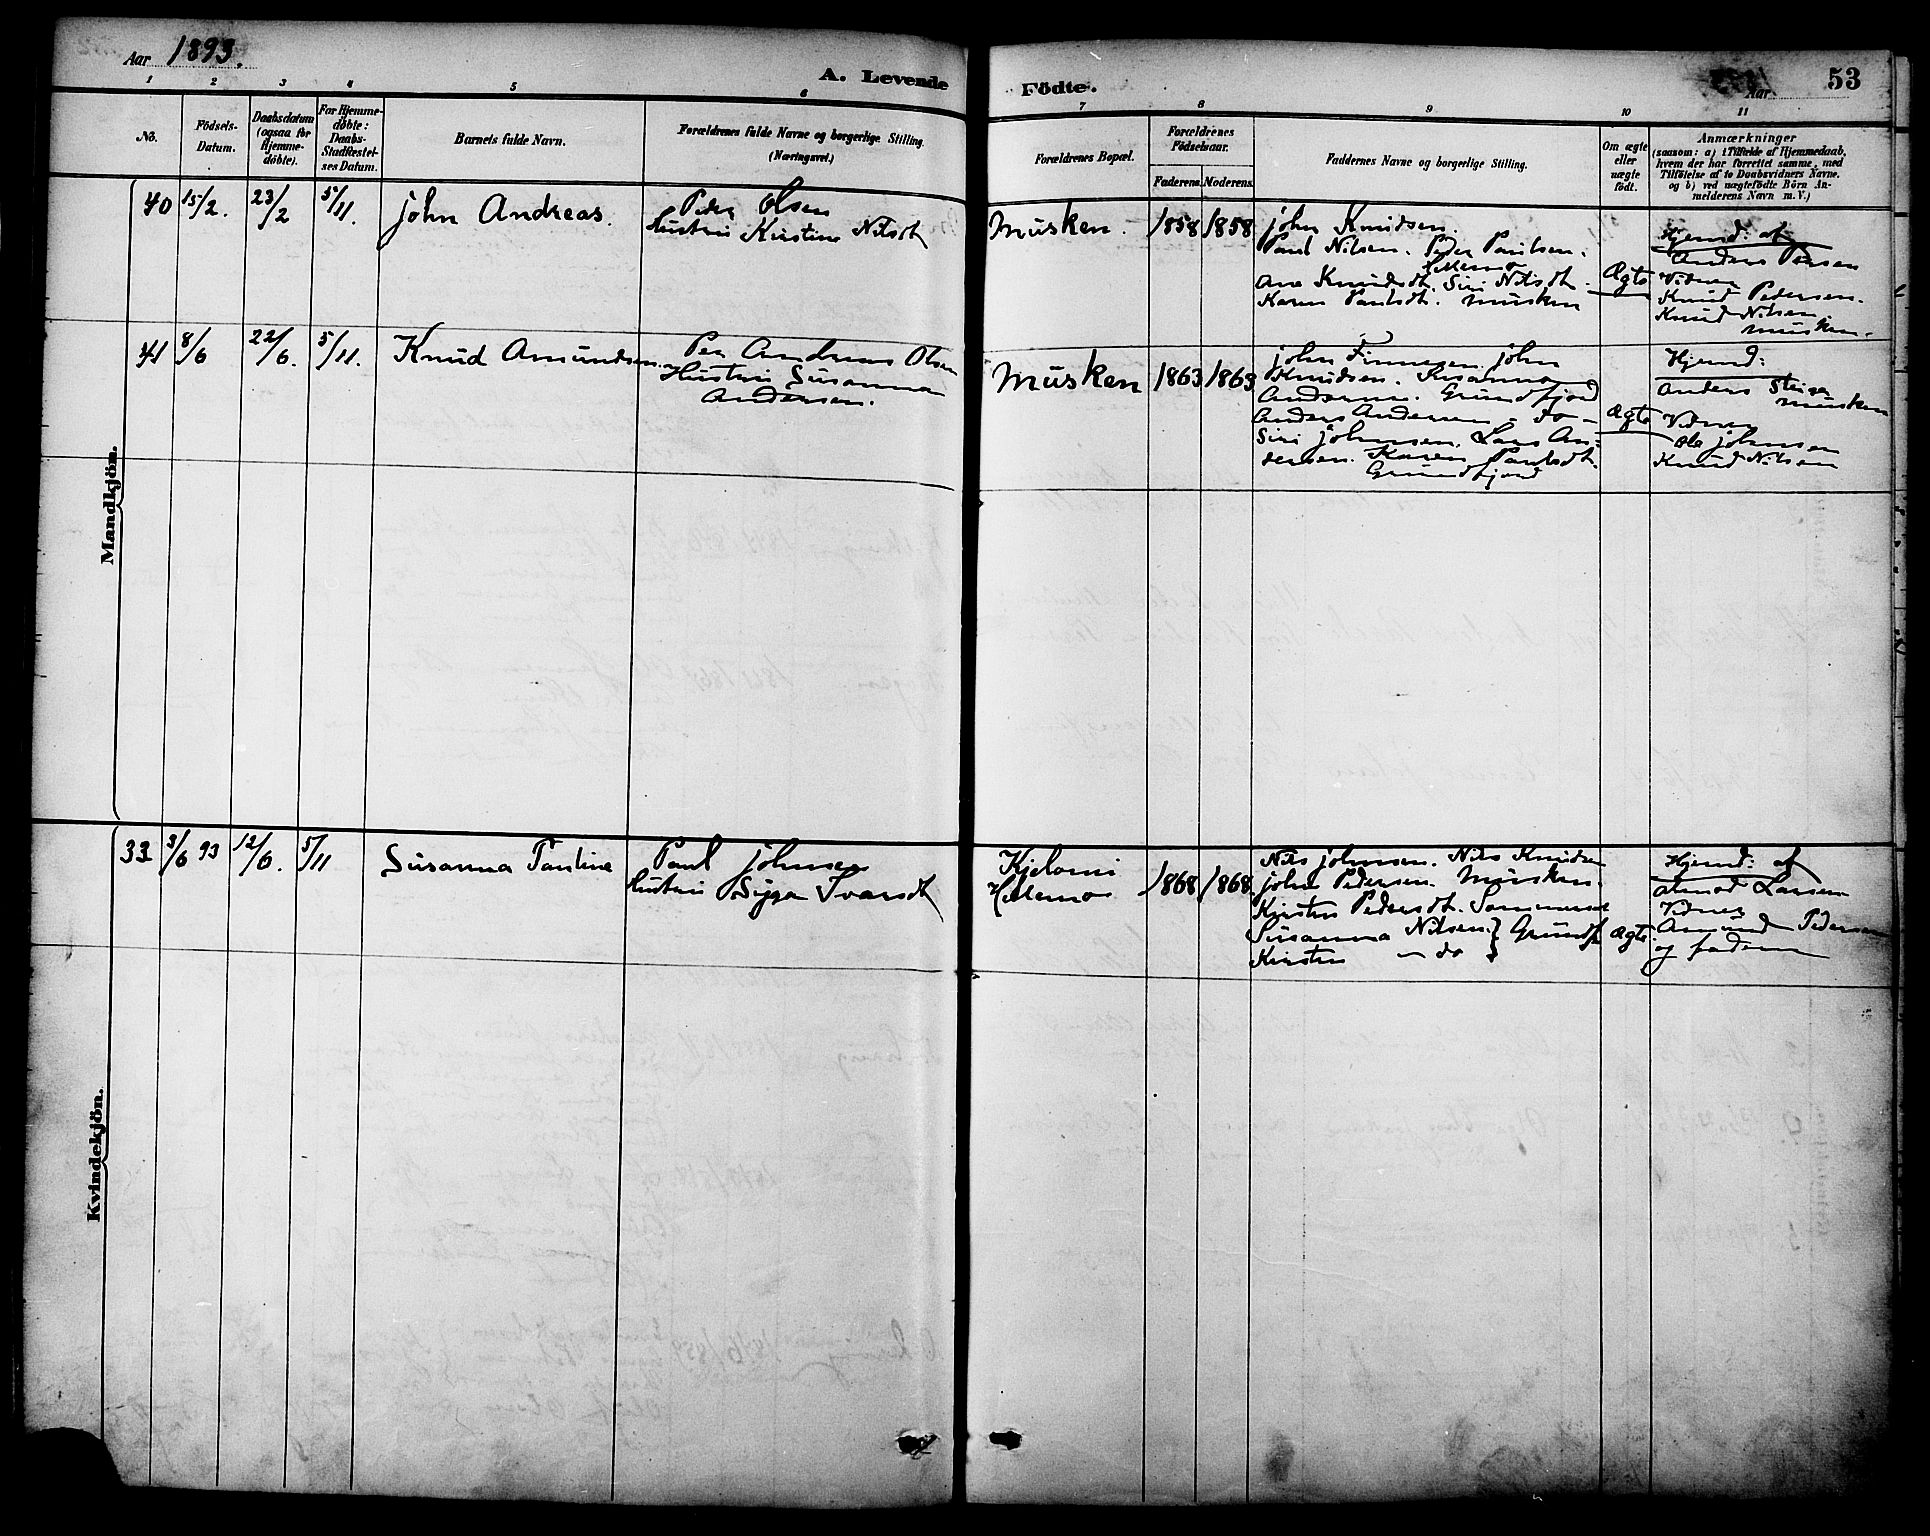 Aar 1893.
A. Levende Födte.
53
Aar
1 2 3 4 5 6 7 8 9 10 11
No.
Födsels-
Datum.
Daabsdatum
(ogsaa for
Hjemme-
döbte).
For Hjemme-
döbte:
Daabs-
Stadfæstel-
ses Datum.
Barnets fulde Navn.
Forældrenes fulde Navne og borgerlige Stilling.
(Næringsvei.)
Forældrenes Bopæl.
Forældrenes
Födselsaar.
Faderens. Moderens.
Faddernes Navne og borgerlige Stilling.
Om ægte
eller
uægte
födt.
Anmærkninger
(saasom: a) i Tilfælde af Hjemmedaab,
hvem der har forrettet samme, med
Tilföielse af to Daabsvidners Navne,
og b) ved uægtefödte Börn An-
melderens Navn m. V.)
Mandkjön.
40 15/2. 23/2 5/11. John Andreas.
Peder Olsen
Hustru Kirstine Nilsdt
Musken. 1858 1858
John Knudsen.
Paul Nilsen. Peder Paulsen.
Hellemo
Ane Knudsdt. Siri Nilsdt.
Karen Paulsdt. Musken
Ægte
Hjemd: af
Anders Persen
Vidner
Knud Pedersen.
Knud Nilsen
Musken.
41 8/6 22/6. 5/11. Knud Amundsen.
Per Andreas Olsen
Hustru Susanna
Andersen.
Musken 1863 1863
John Finnesen. John
Knudsen. Susanna
Andersen. Grundfjord
Anders Andersen - do -
Siri Johnsen. Lars An-
dersen. Karen Paulsdt.
Grundfjord
Ægte
Hjemd:
Anders
Musken
Vidner
Ole Johnsen
Knud Nilsen
Kvindekjön.
33 3/6 93 12/6. 5/11 Susanna Pauline
Paul Johnsen
Hustru Sigga Ivarsdt
Hellemo
1868 1868
Nils Johnsen. Nils Knudsen
John Pedersen. Musken.
Kirsten Pedersdt. Sommerset
Susanna Nilsen } Grundf
Kirsten - do }
Ægte
Hjemd: af
Larsen
Vidner
Amund Pedersen
og faderen